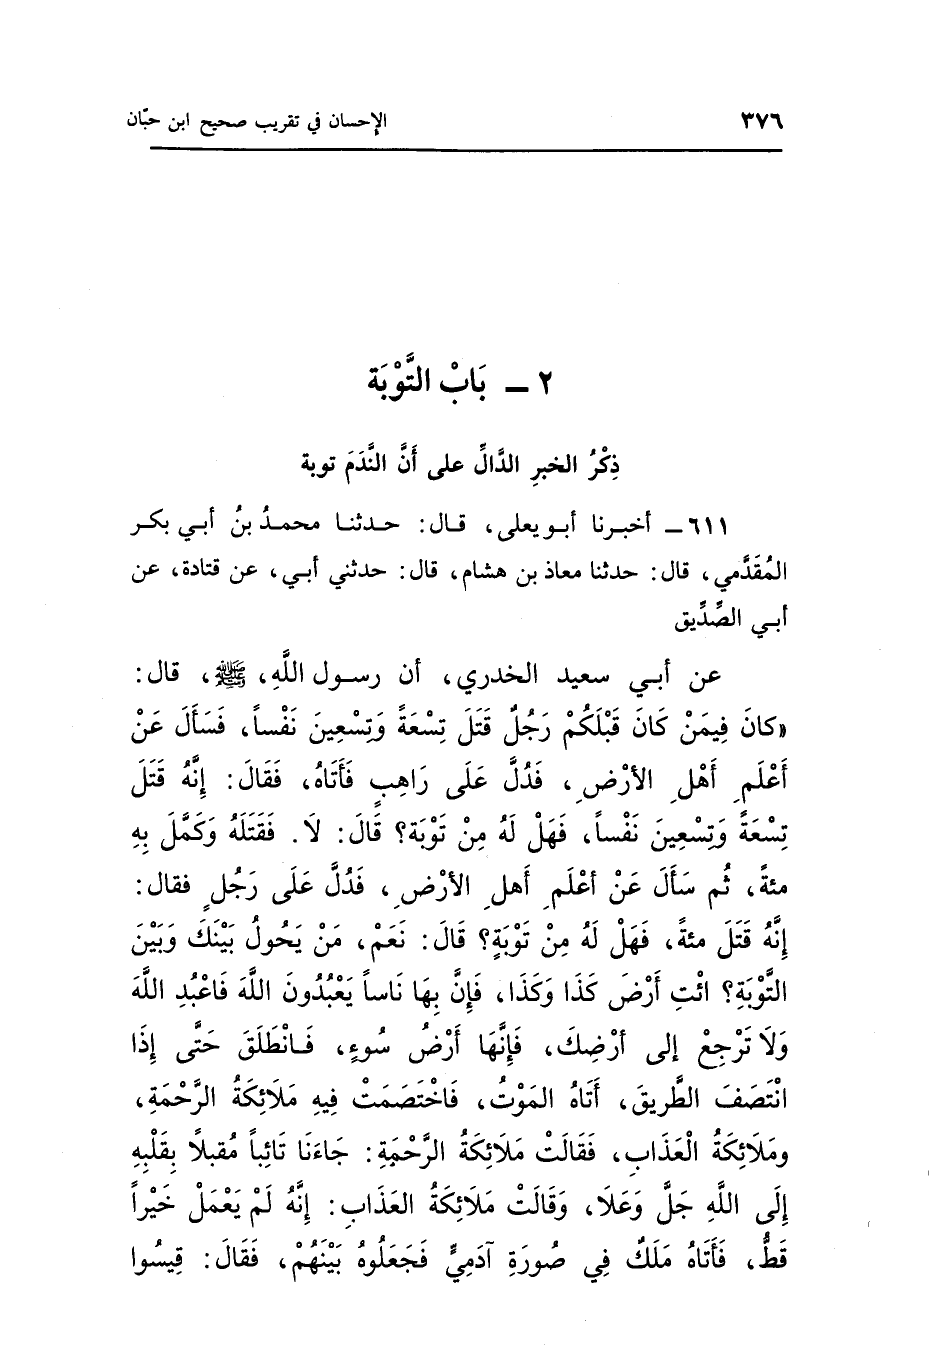 ٣٧٦ الإحسان في تقريب صحيح ابن حبّان
٢ ـ بَابُ التَّوْبَة
ذِكْرُ الخبرِ الدَّالِّ على أَنَّ النَّدَمَ توبة
٦١١ ـ أخبرنا أبو يعلى، قال: حدثنا محمدُ بنُ أبي بكر
المُقَدَّمي، قال: حدثنا معاذ بن هشام، قال: حدثني أبي، عن قتادة، عن
أبي الصِّدِّيق
عن أبي سعيد الخدري، أن رسول اللَّهِ، ﷺ، قال:
«كانَ فِيمَنْ كَانَ قَبْلَكُمْ رَجُلٌ قَتَلَ تِسْعَةً وَتِسْعِينَ نَفْساً، فَسَأَلَ عَنْ
أَعْلَمِ أَهْلِ الأَرْضِ، فَدُلَّ عَلَى رَاهِبٍ فَأَتَاهُ، فَقَالَ: إِنَّهُ قَتَلَ
تِسْعَةً وَتِسْعِينَ نَفْساً، فَهَلْ لَهُ مِنْ تَوْبَة؟ قَالَ: لَا. فَقَتَلَهُ وَكَمَّلَ بِهِ
مئةً، ثُم سَأَلَ عَنْ أعْلَمِ أَهلِ الأرْضِ، فَدُلَّ عَلَى رَجُلٍ فقال:
إِنَّهُ قَتَلَ مئةً، فَهَلْ لَهُ مِنْ تَوْبَةٍ؟ قَالَ: نَعَمْ، مَنْ يَحُولُ بَيْنَكَ وَبَيْنَ
التَّوْبَةِ؟ ائْتِ أَرْضَ كَذَا وَكَذَا، فَإِنَّ بِهَا نَاساً يَعْبُدُونَ اللَّهَ فَاعْبُدِ اللَّهَ
وَلَا تَرْجِعْ إلى أرْضِكَ، فَإِنَّهَا أَرْضُ سُوءٍ، فَانْطَلَقَ حَتَّى إِذَا
انْتَصَفَ الطَّرِيقَ، أَتَاهُ المَوْتُ، فَاخْتَصَمَتْ فِيهِ مَلَائِكَةُ الرَّحْمَةِ،
ومَلَائِكَةُ الْعَذَابِ، فَقَالَتْ مَلَائِكَةُ الرَّحْمَةِ: جَاءَنَا تَائِباً مُقبلاً بِقَلْبِهِ
إِلَى اللَّهِ جَلَّ وَعَلَا، وَقَالَتْ مَلَائِكَةُ العَذَابِ: إِنَّهُ لَمْ يَعْمَلْ خَيْراً
قَطُّ، فَأَتَاهُ مَلَكٌ فِي صُورَةِ آدَمِيٍّ فَجَعَلُوهُ بَيْنَهُمْ، فَقَالَ: قِيسُوا